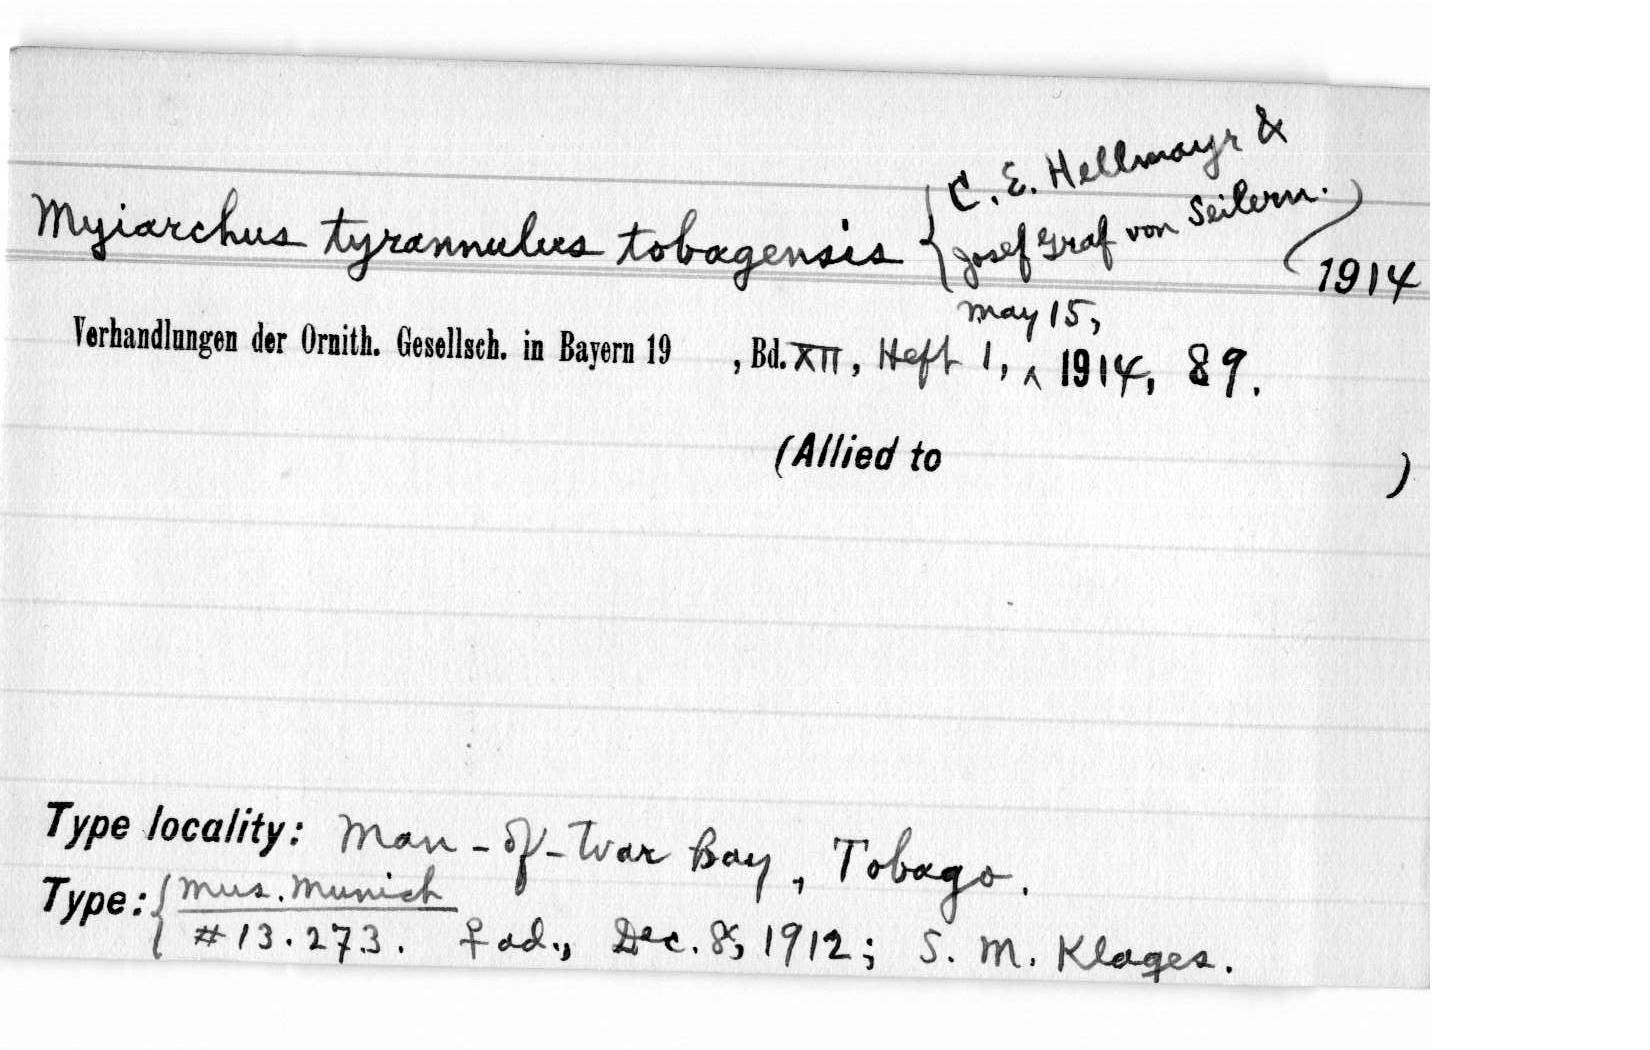 Myiarchus tyrannulus tobagensis { C. E. Hellmayr &
Josef Graf von Seilern. ) 1914
May 15,
Verhandlungen der Ornith. Gesellsch. in Bayern 19 , Bd. XII, Heft 1, ^ 1914, 89.
(Allied to )
Type locality: Man-of-War Bay, Tobago.
Type: { Mus. Munich
#13.273. ♀ ad., Dec. 8, 1912; S. M. Klages.